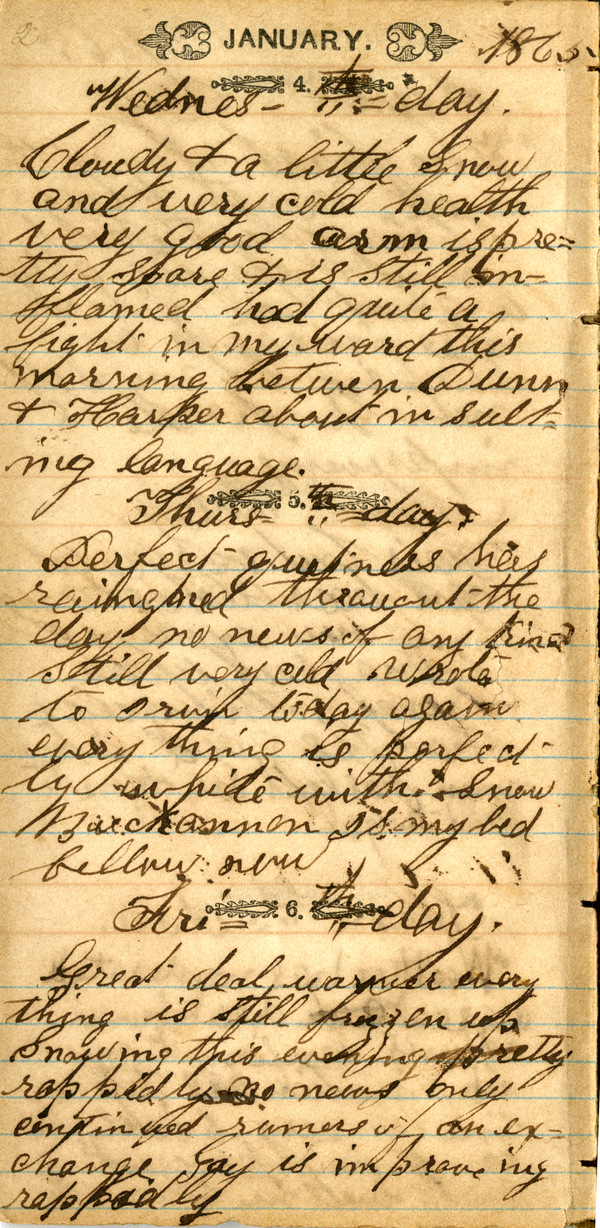 2
JANUARY. 1865.
Wednes- 4. th = day.
Cloudy & a little Snow
and very cold health
very good arm is pre=
tty soare & is still in-
flamed had quite a
fight in my ward this
morning between Dunn
& Harper about in sult-
ing language.
Thurs- 5. th = day.
Perfect quietness has
raingned throuout the
day no news of any kind
Still very cold Wrote
to Orvin today again
every thing is perfect-
ly white with Snow
is my bed
bellow now
Fri= 6. th = day.
Great deal warmer every
thing is still frozen up
Snowing this evening pretty
rappidly no news only
continued rumers of an ex-
change Gay is improveing
rappidly